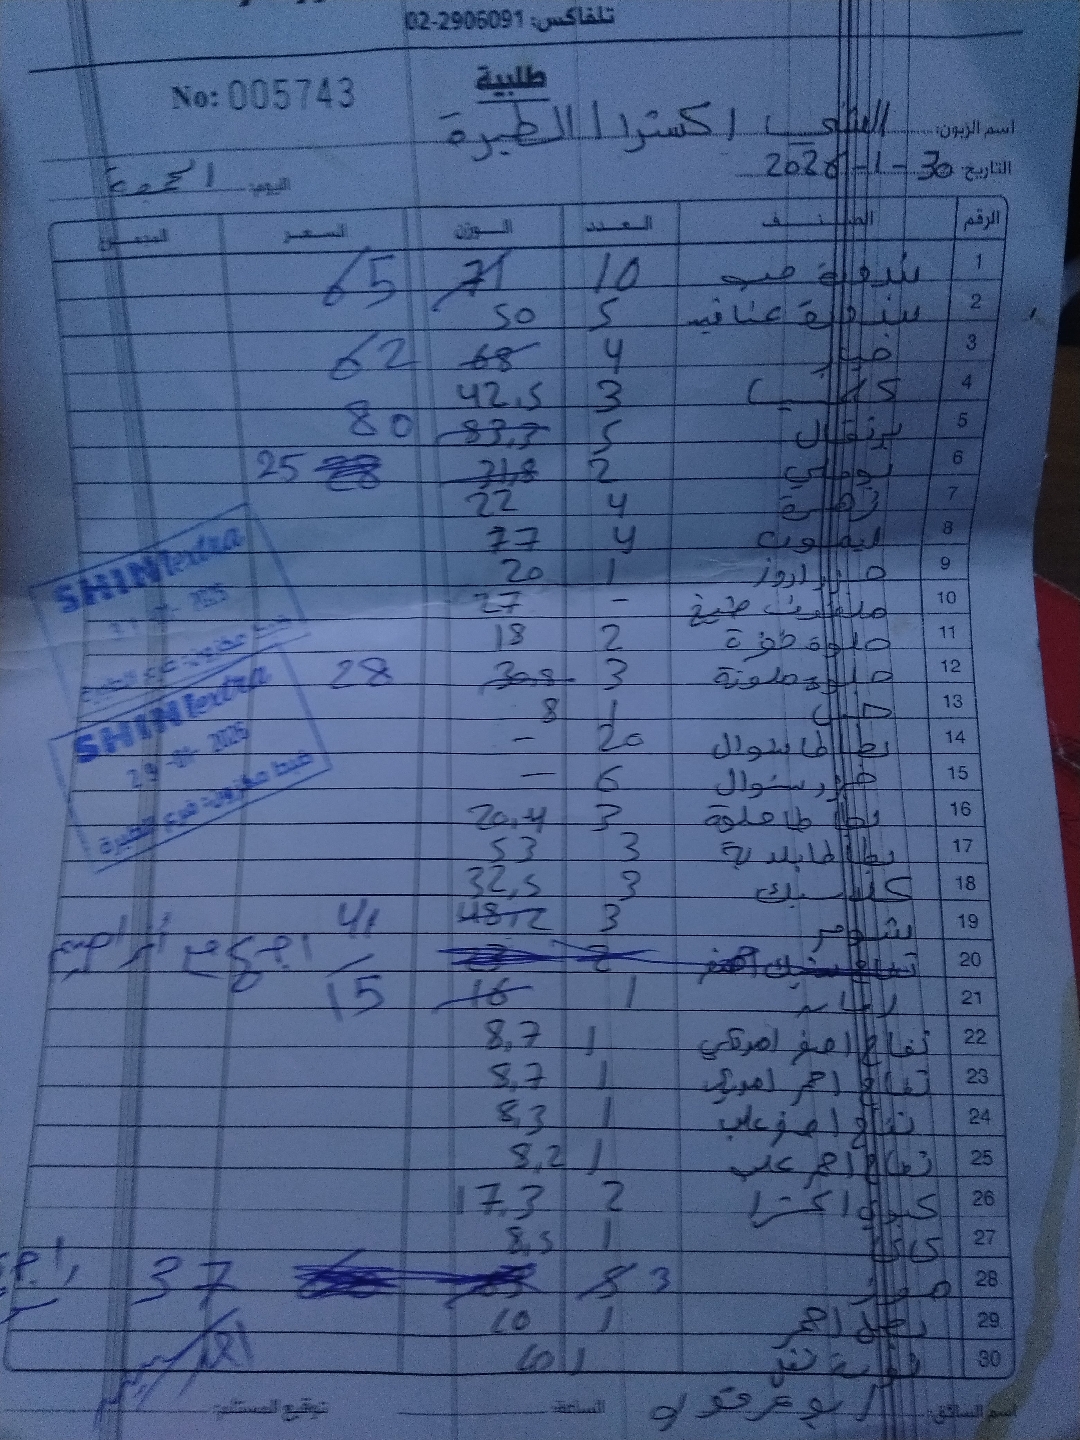 تلفاكس: 02-2906091
طلبية
No: 005743
اسم الزبون: الشني اكسترا الطيرة
التاريخ 30-1-2026 اليوم: الجمعة
الرقم الصنف العدد الوزن السعر المجموع
1 بندورة حب 10 71 65
2 بندورة عناقيد 5 50
3 خيار 4 68 62
4 3 42,5
5 برتقال 5 83,3 80
6 بوملي 2 21,8 28 25
7 زهرة 4 22
8 ليمون 4 77
9 1 20
10 ملفوف طبخ - 27
11 حلوة 2 18
12 حلوة ملونة 3 30,8 28
13 1 8
14 بطاطا شوال 20 -
15 جزر شوال 6 -
16 بطاطا حلوة 3 20,4
17 بطاطا بلدية 3 53
18 كلمنتينا 3 32,5
19 شومر 3 48,2 41
20 2
21 1 16 15
22 تفاح اصفر امريكي 1 8,7
23 تفاح احمر امريكي 1 8,7
24 تفاح اصفر علب 1 8,3
25 تفاح احمر علب 1 8,2
26 كيوي اكسترا 2 17,3
27 كاكا 1 8,5
28 موز 5 3 37
29 بصل احمر 1 10
30 1 10
SHINI extra
29-01-2025
ضبط مخزون- فرع الطيرة
SHINI extra
29-01-2025
ضبط مخزون- فرع الطيرة
اسم السائق: الساعة: توقيع المستلم: